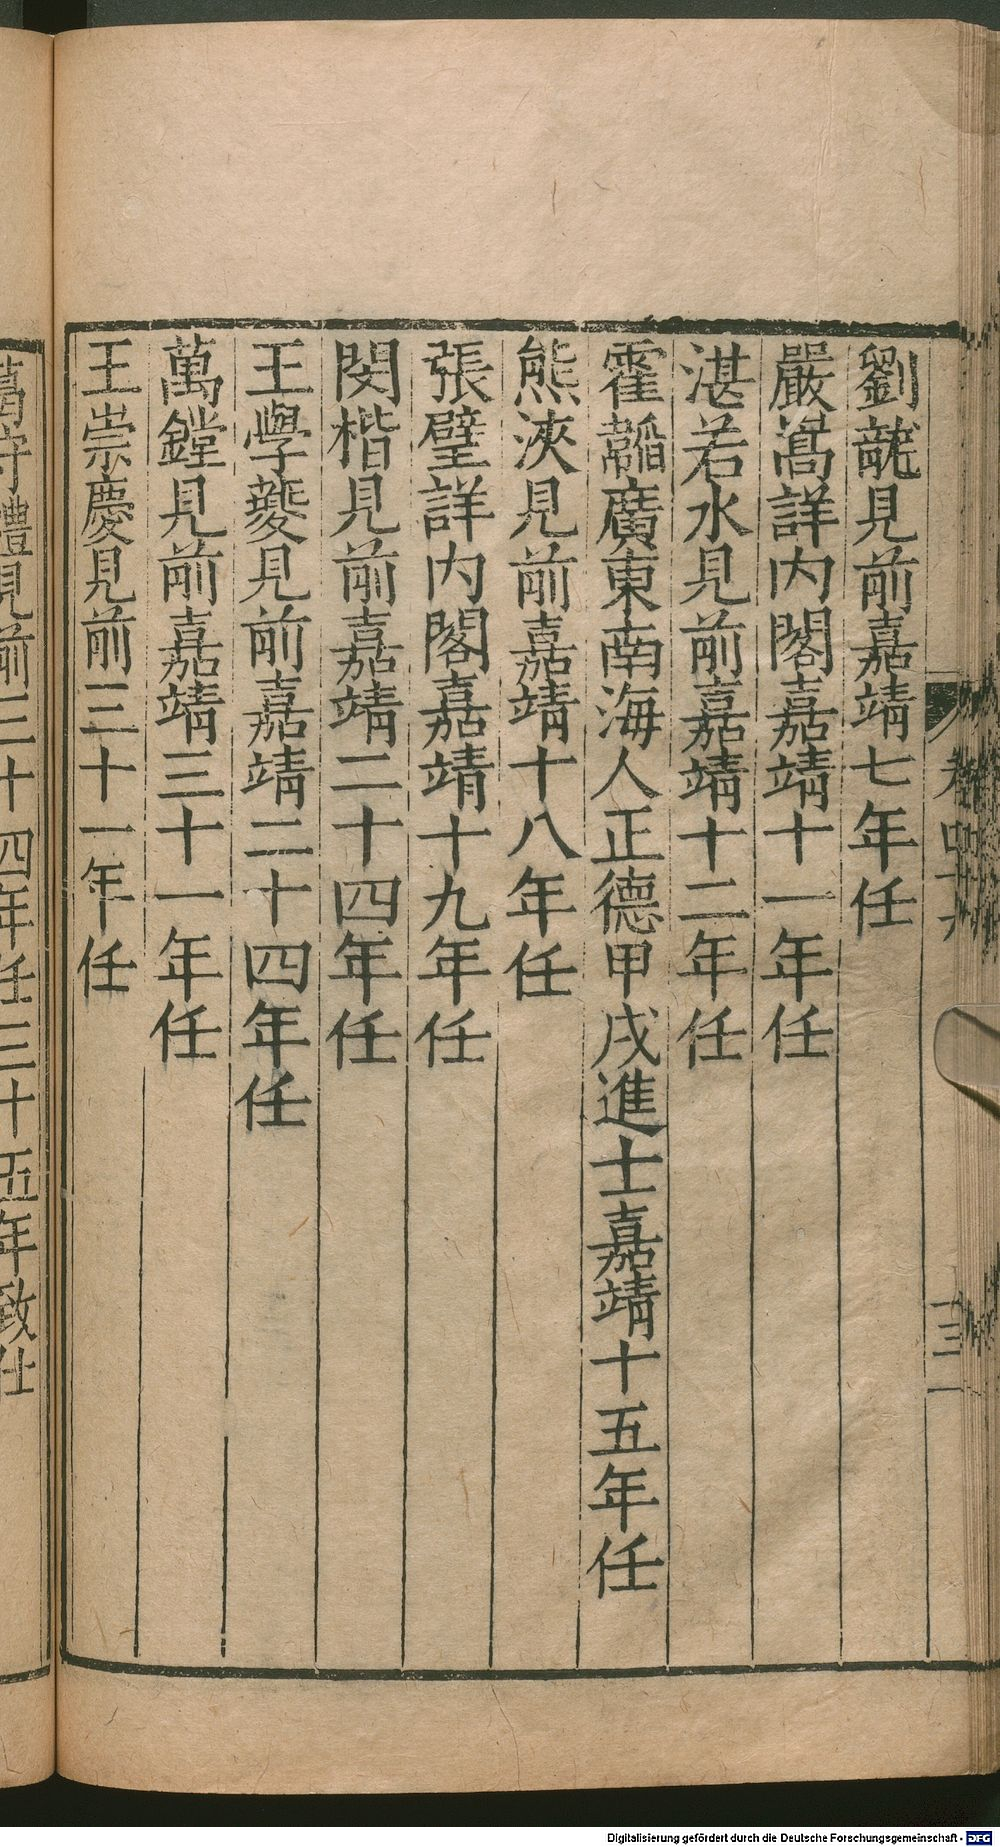 劉龍見前嘉靖七年任
嚴嵩詳內閣嘉靖十一年任
湛若水見前嘉靖十二年任
霍韜廣東南海人正德甲戌進士嘉靖十五年任
熊浹見前嘉靖十八年任
張璧詳內閣嘉靖十九年任
閔楷見前嘉靖二十四年任
王學夔見前嘉靖二十四年任
萬鏜見前嘉靖三十一年任
王崇慶見前三十一年任
葛守禮見前三十四年任三十五年致仕
Digitalisierung gefördert durch die Deutsche Forschungsgemeinschaft - DFG